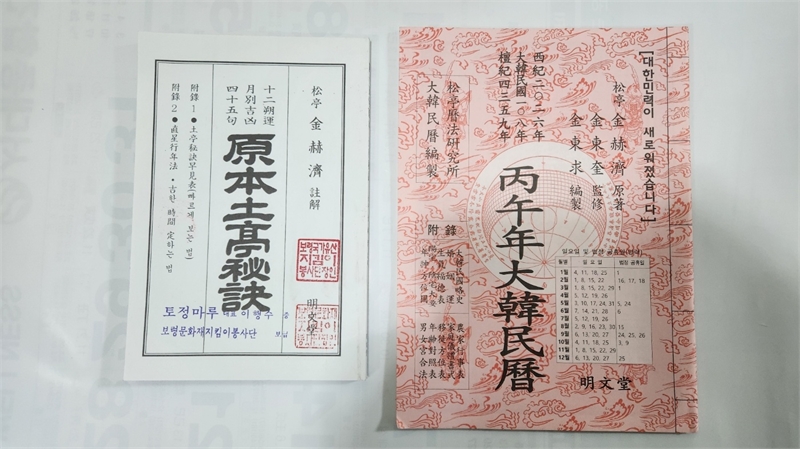 松亭 金赫濟 註解
原本土亭秘訣
十二朔運
月別吉凶
四十五句
附錄 1 ● 土亭秘訣早見表(빠르게 보는 법)
附錄 2 ● 直星行年法 · 古한 時間 定하는 법
明文堂
보령국가유산
지킴이
봉사단장인
토정마루 대표 이행주 증
보령문화재지킴이봉사단
[대한민력이 새로워졌습니다]
松亭 金赫濟 原著
金東奎 監修
金東求 編製
西紀二○二六年
大韓民國一○八年
檀紀四三五九年
松亭曆法硏究所
大韓民曆編製
丙午年大韓民曆
附錄
大韓民國略史
農家行事表
家庭儀禮書式
移徙方位表
年齡對照表
男女宮合法
일요일 및 법정 공휴일(양력)
월명 일요일 법정 공휴일
1월 4, 11, 18, 25 1
2월 1, 8, 15, 22 16, 17, 18
3월 1, 8, 15, 22, 29 1
4월 5, 12, 19, 26
5월 3, 10, 17, 24, 31 5, 24
6월 7, 14, 21, 28 6
7월 5, 12, 19, 26
8월 2, 9, 16, 23, 30 15
9월 6, 13, 20, 27 24, 25, 26
10월 4, 11, 18, 25 3, 9
11월 1, 8, 15, 22, 29
12월 6, 13, 20, 27 25
明文堂